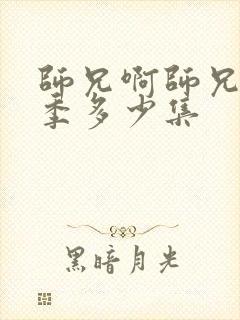 師兄啊師兄
季多少集
黑暗月光